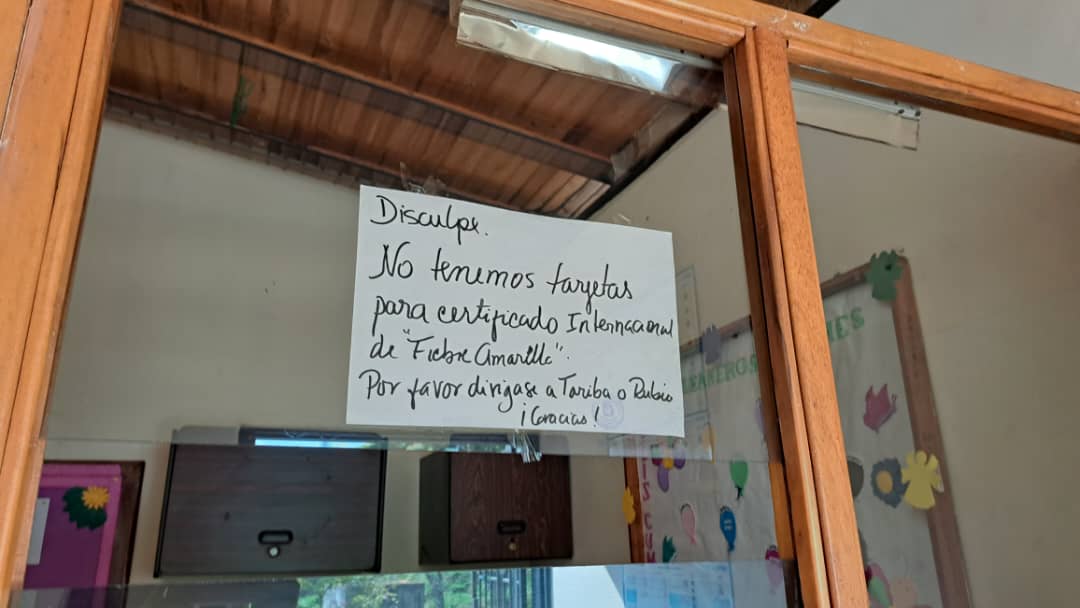 Disculpe.
No tenemos targetas
para certificado Internacional
de "Fiebre Amarilla".
Por favor dirigase a Tariba o Rubio
¡Gracias!